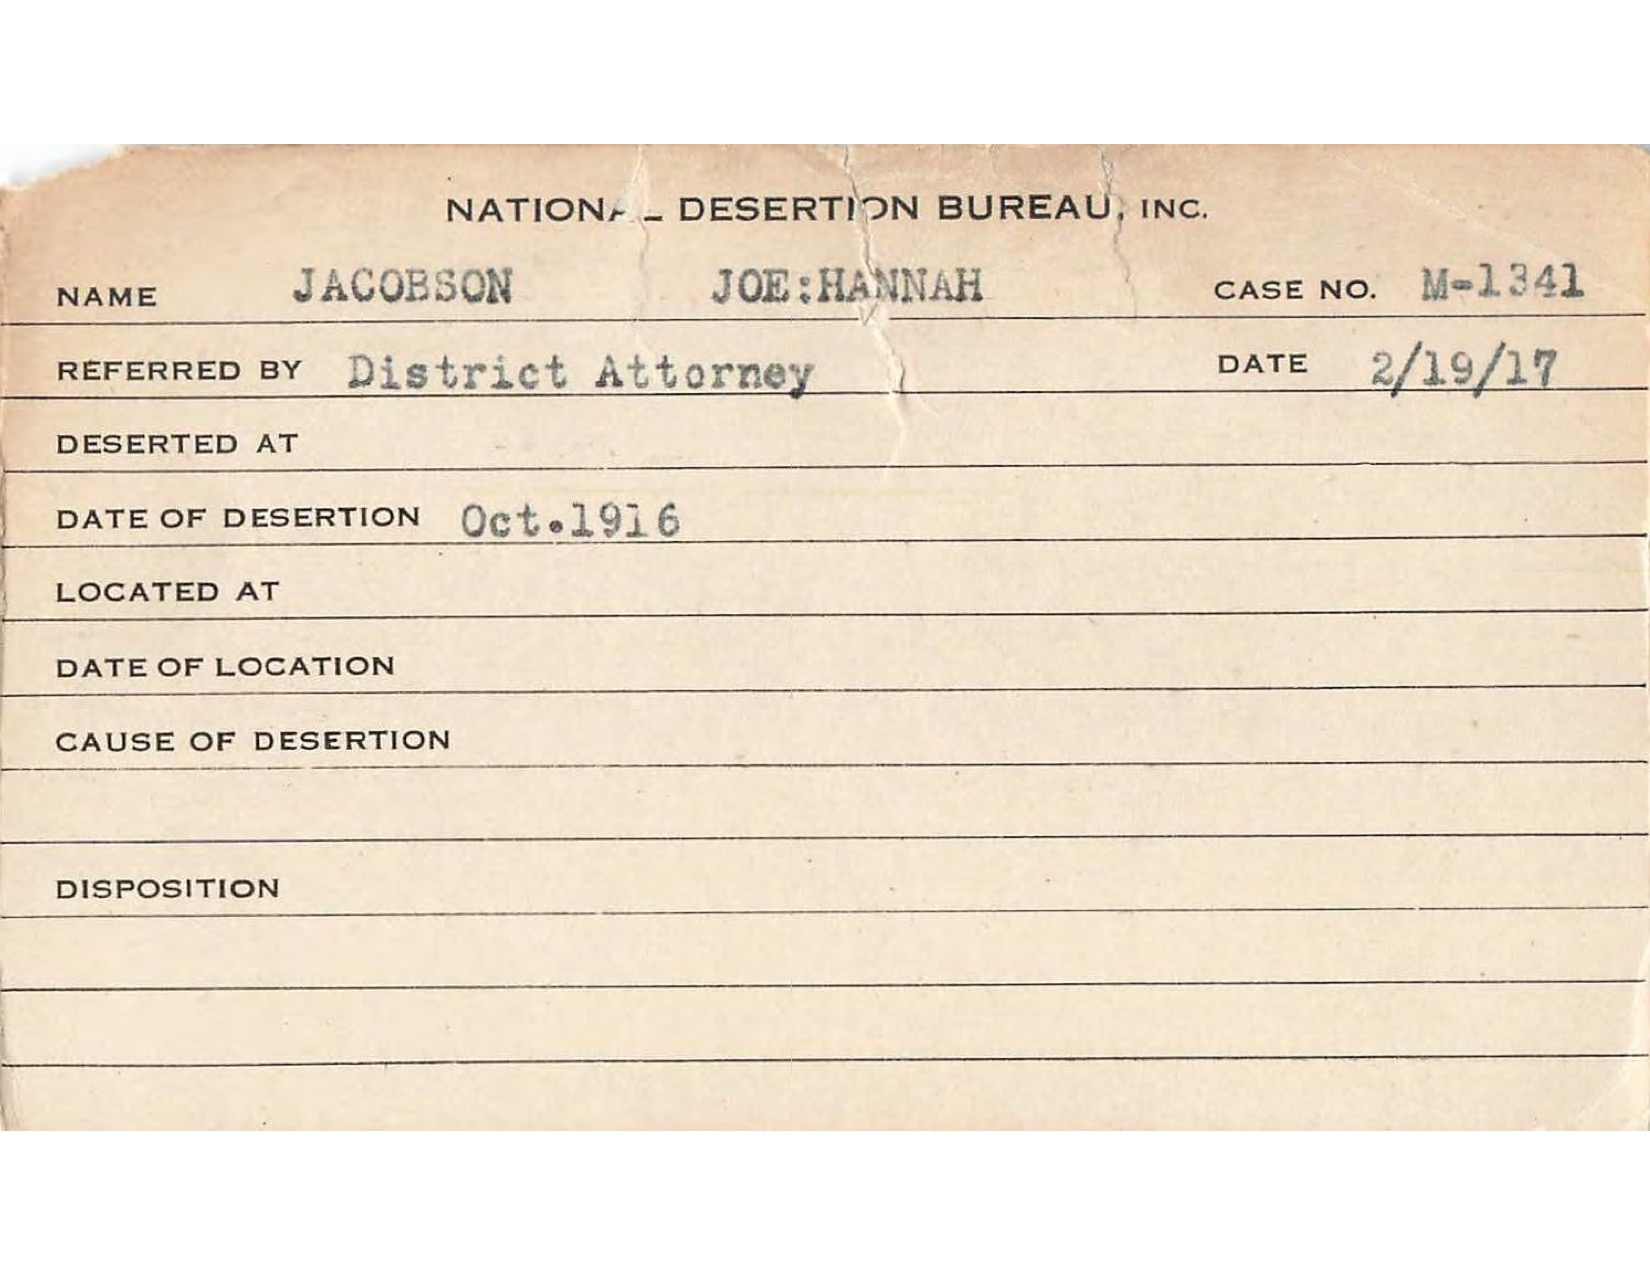 NATIONAL DESERTION BUREAU, INC.
NAME JACOBSON JOE:HANNAH CASE NO. M-1341
REFERRED BY District Attorney DATE 2/19/17
DESERTED AT
DATE OF DESERTION Oct.1916
LOCATED AT
DATE OF LOCATION
CAUSE OF DESERTION
DISPOSITION